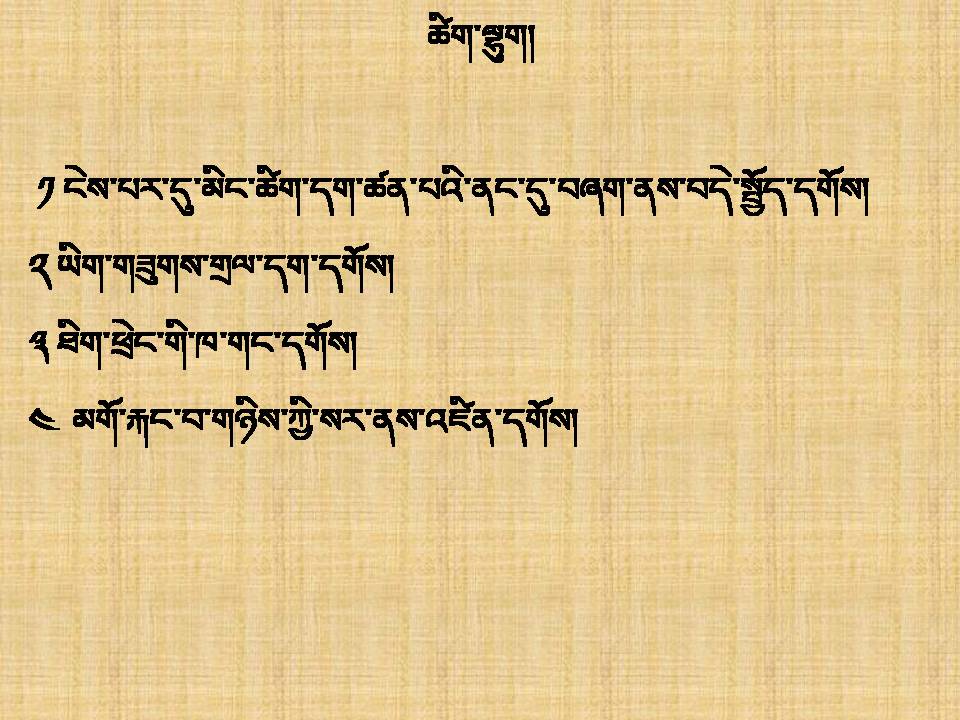 ཚིག་ལྷུག།
༡ ངེས་པར་དུ་མིང་ཚིག་དག་ཚན་པའི་ནང་དུ་བཞག་ནས་བདེ་སྦྱོད་དགོས།
༢ ཡིག་གཟུགས་གྲལ་དག་དགོས།
༣ ཐིག་ཕྲེང་གི་ཁ་གང་དགོས།
༤ མགོ་རྐང་བ་གཉིས་ཀྱི་སར་ནས་འཛིན་དགོས།